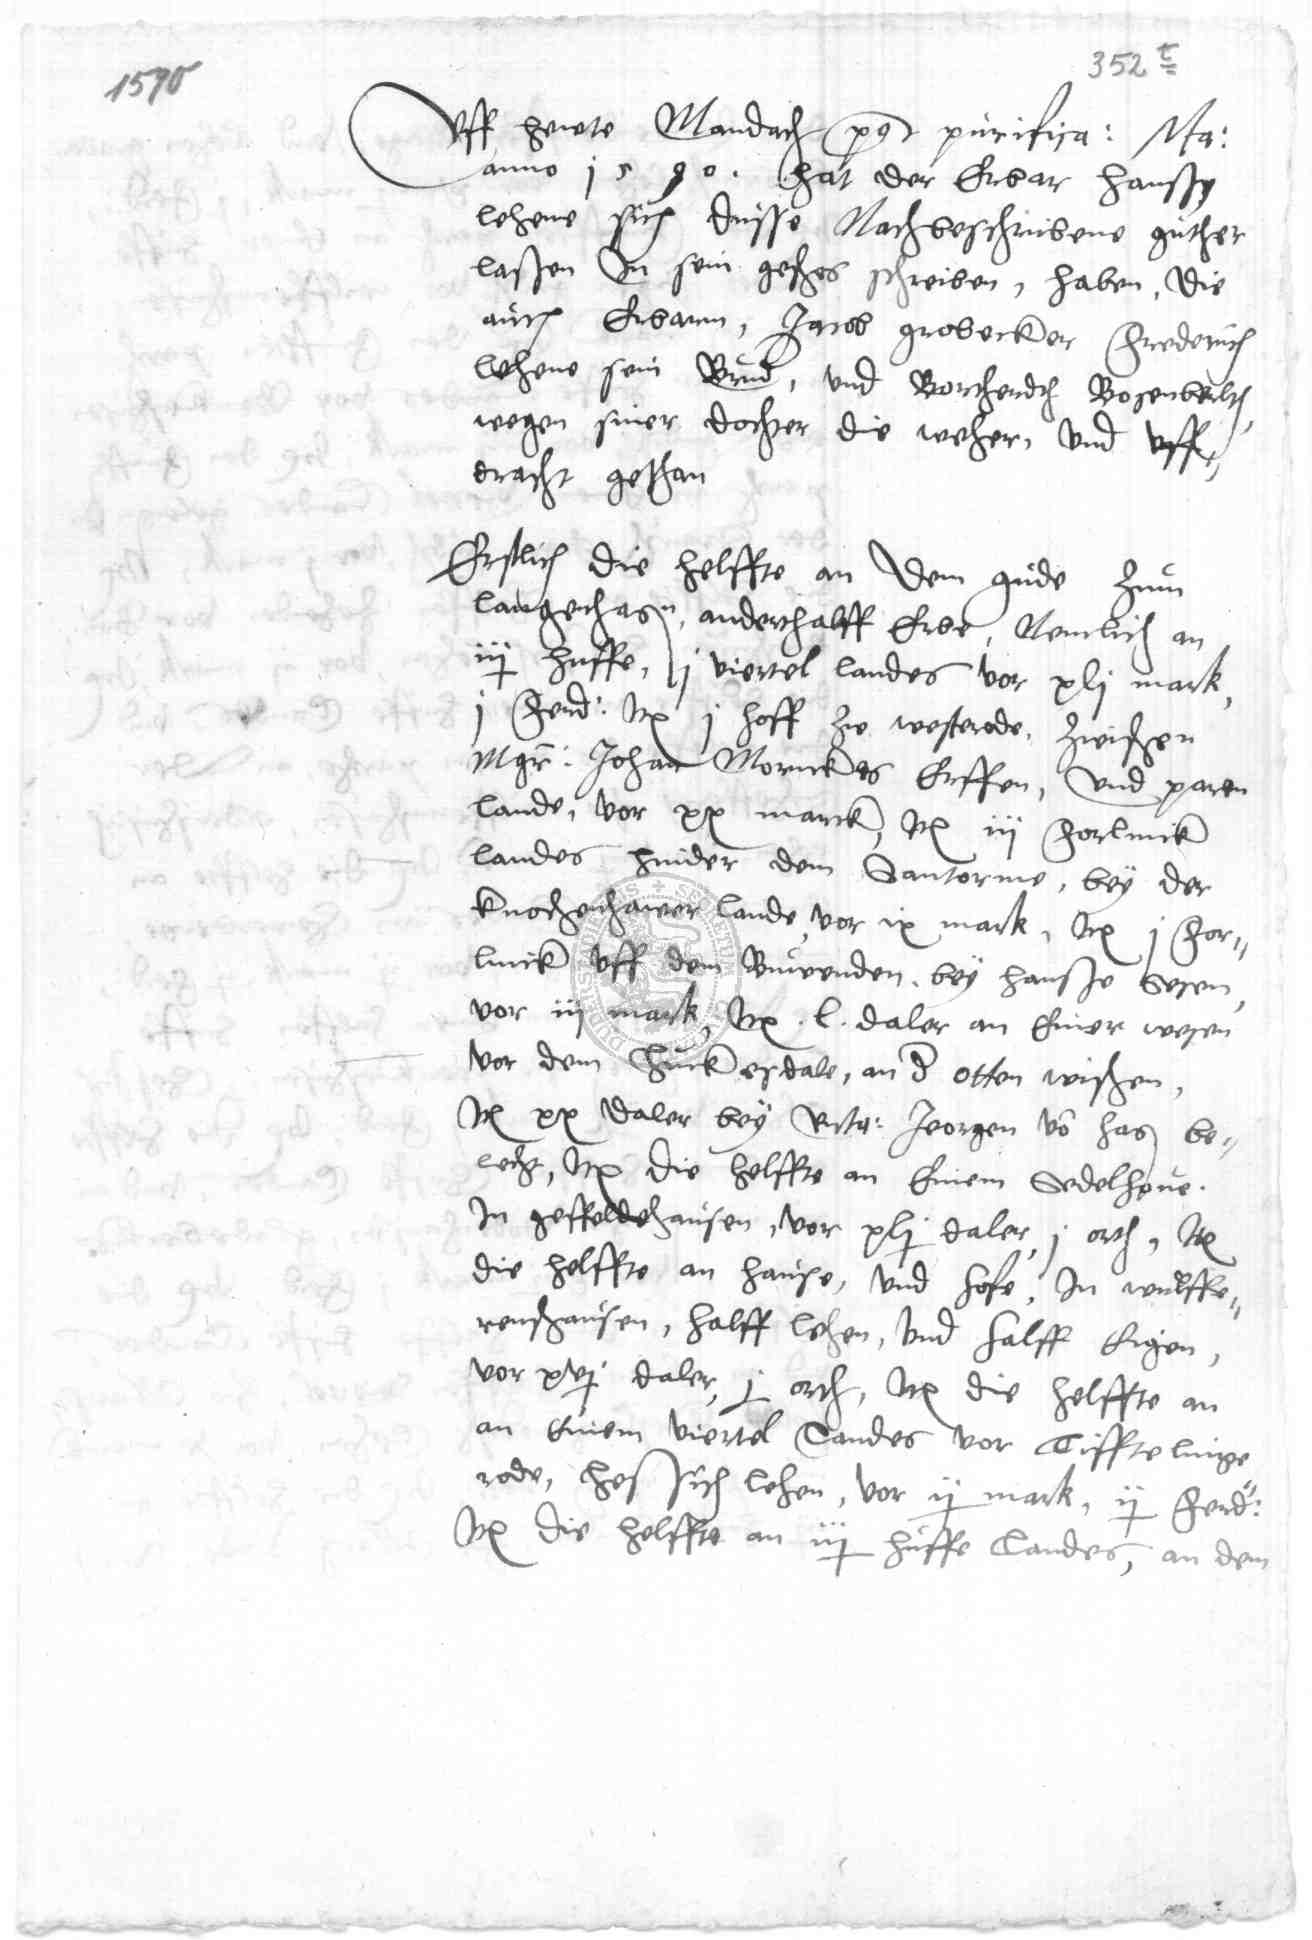 1590
352 t
Uff hewte Mandach post purifica: Ma:
anno 1590. hat der Erbar Hanss
lehene sich dusse Nachbeschribene guther
lassen In sein geschos schreiben, haben, die
auch Erbarnn, Jacob grobecker Frederich
lehene sein Brud, und Borchardth Bosenberch,
wegen siner dochter die weher, und uff,,
dracht gethan
Erstlich die helffte an dem gude zum
langenhagn, anderthalff Erbe, Nemlich an
iiij huffe, j viertel landes vor xlj mark,
j Ferd: Itx j hoff zw westerode, zwischen
Mgr: Johan Mornckes Erffen, und paren
lande, vor xx marck, Itx iij Forlinck
landes hinder dem Santorme, bey der
knochenhawer lande, vor ix mark, Itx j For=
linck uff dem Buwenden, bey hansse Sesen,
vor iij mark, Itx . l . daler an Einer wesen
vor dem Huckesdale, an d otten wischen,
Itx xx daler bey Rits: Jeorgen vo has be=
lecht, Itx die helffte an Einem Sedelhove.
In geffeldehausen, vor xlj daler, j orth, Itx
die helffte an hause, und hofe, In wulffe=
renshausen, halff lehen, und halff Eigen,
vor xvj daler, j orth, Itx die helffte an
an Einem viertel Landes vor Tifftelinge
rode, hessisch lehen, vor ij mark, ij Ferd:
Itx die helffte an iiij huffe Landes, an dem